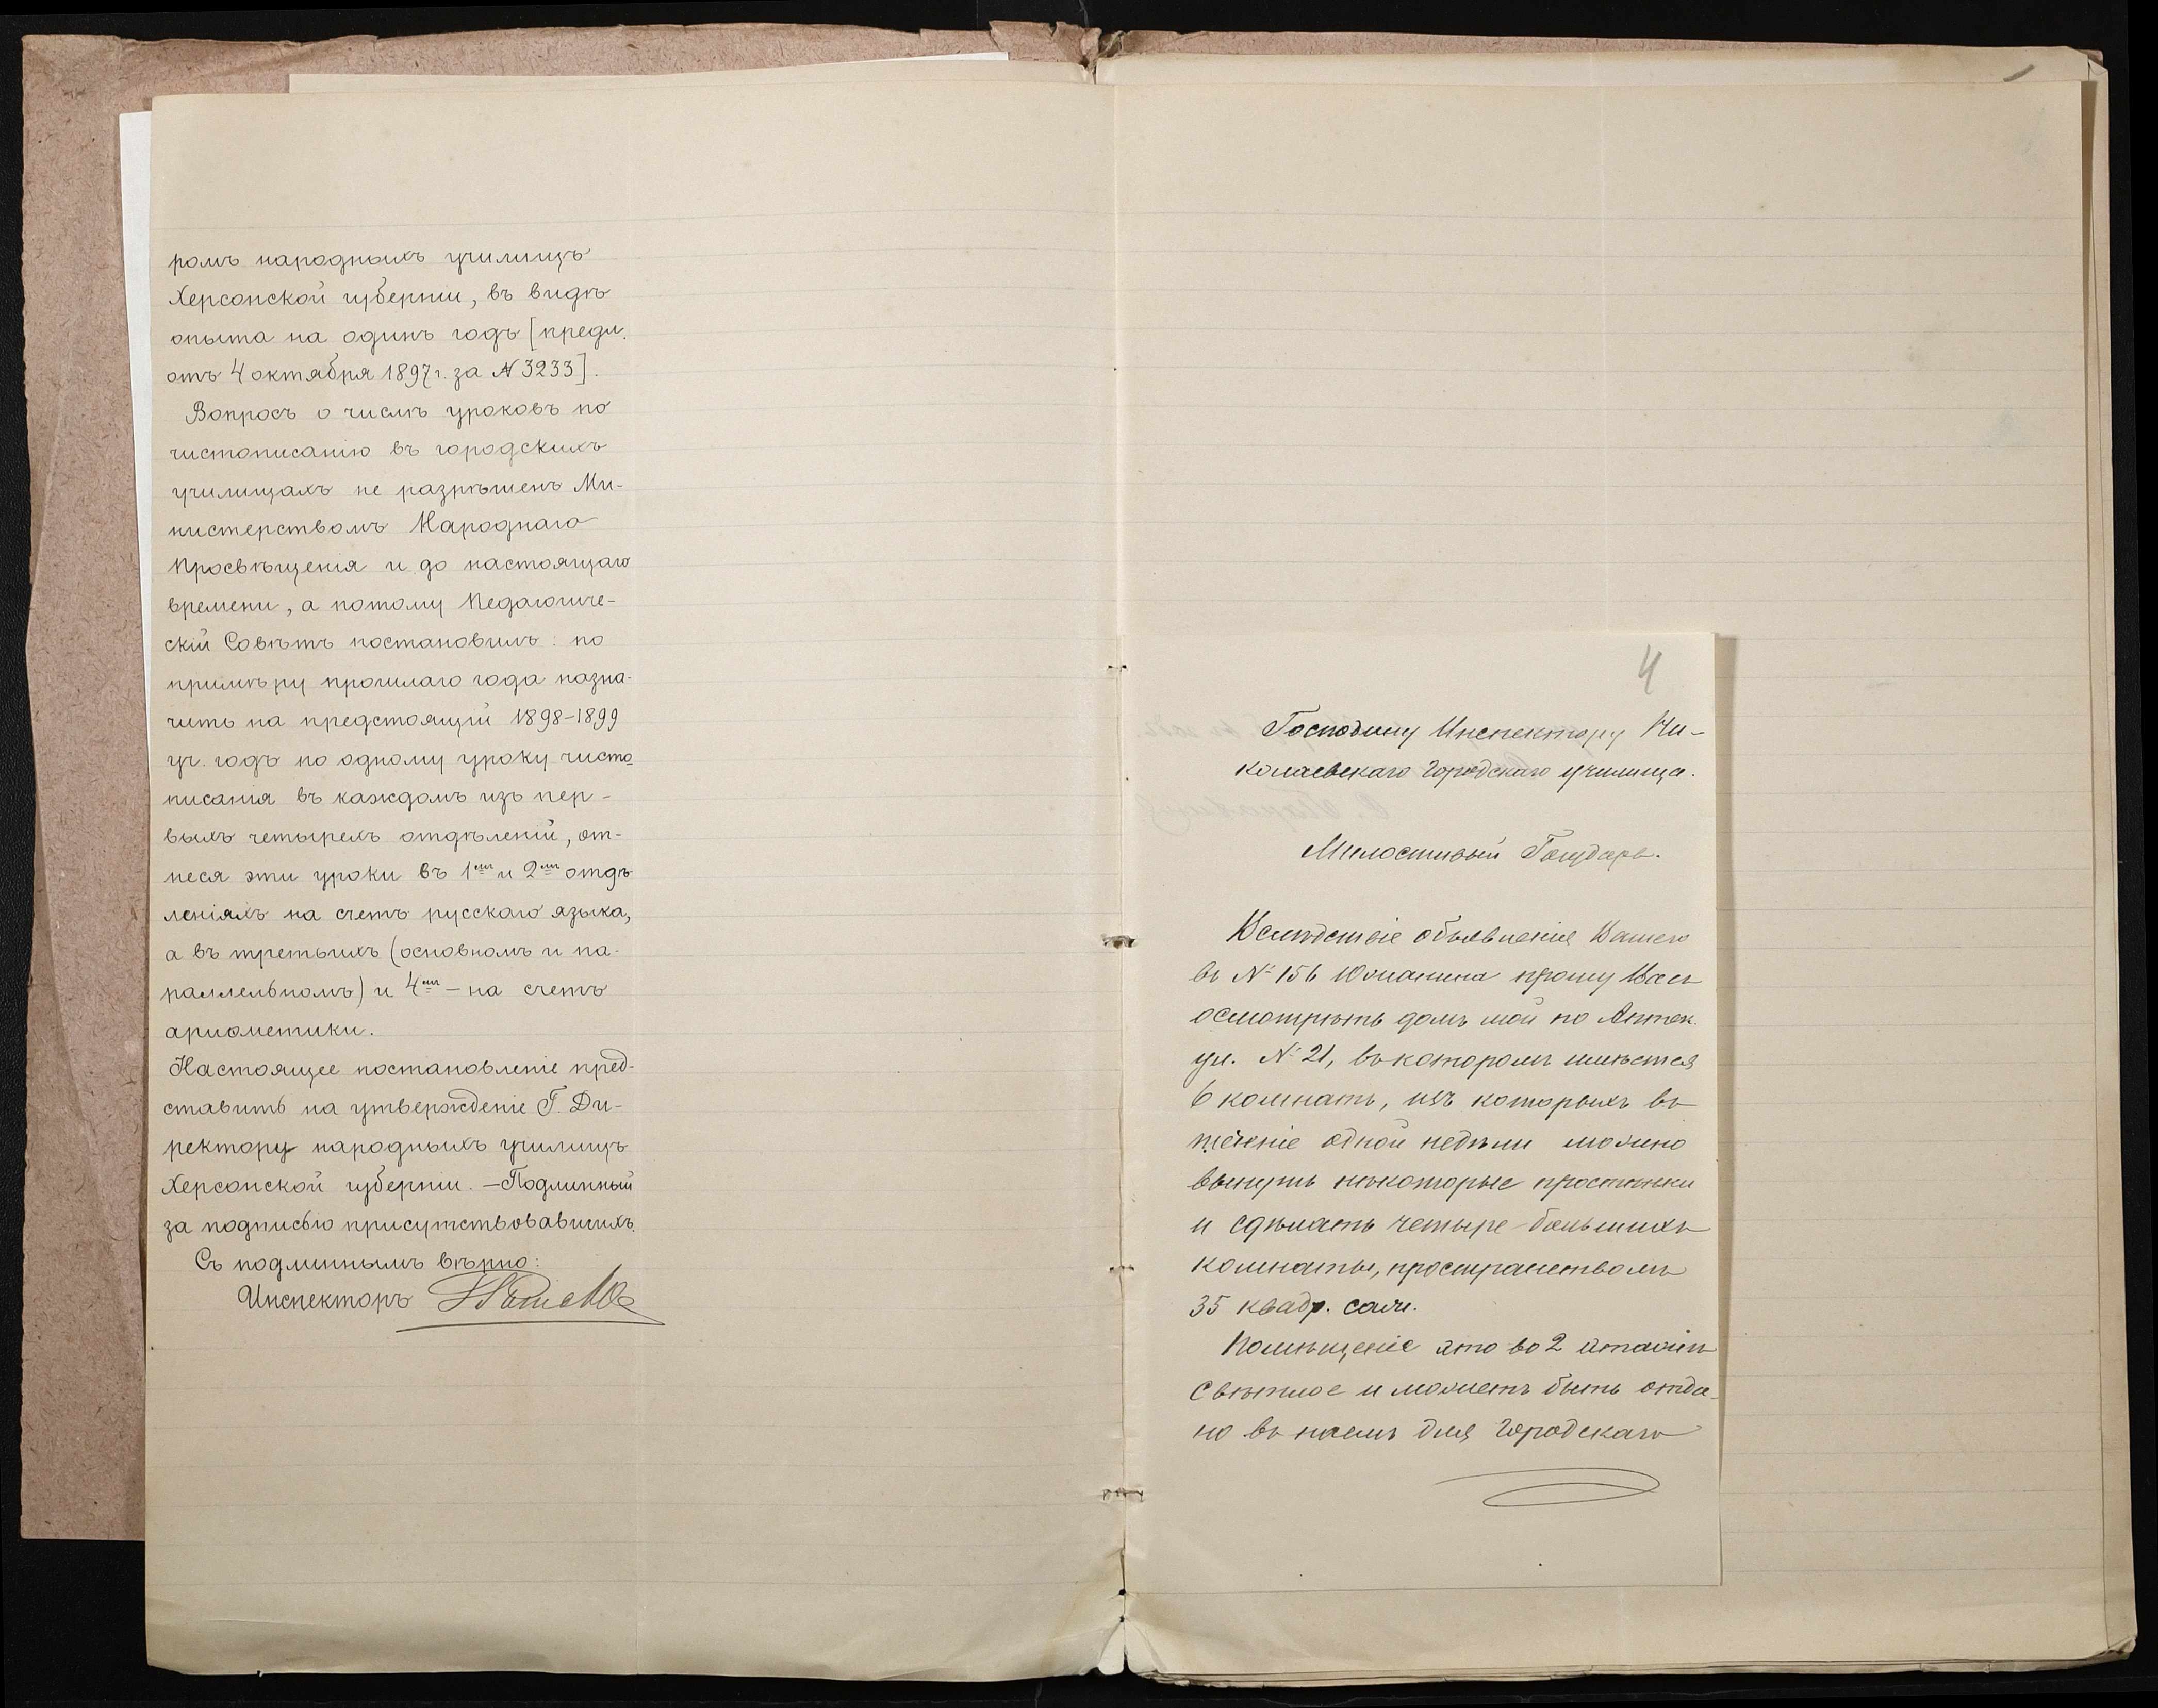 ромъ народныхъ училищъ
Херсонской губерніи, въ видѣ
опыта на одинъ годъ [предл.
отъ 4 октября 1897 г. за № 3233].
Вопросъ о числѣ уроковъ по
чистописанію въ городскихъ
училищахъ не разрѣшенъ Ми-
нистерствомъ Народнаго
Просвѣщенія и до настоящаго
времени, а потому Педагогиче-
скій Совѣтъ постановилъ: по
примѣру прошлаго года назна-
чить на предстоящій 1898-1899
уч. годъ по одному уроку чисто
писанія въ каждомъ изъ пер-
выхъ четырехъ отдѣленій, от-
неся эти уроки въ 1мъ и 2мъ отдѣ
леніяхъ на счетъ русскаго языка,
а въ третьихъ (основномъ и па-
раллельномъ) и 4мъ - на счетъ
ариѳметики.
Настоящее постановленіе пред-
ставить на утвержденіе Г. Ди-
ректору народныхъ училищъ
Херсонской губерніи. - Подлинный
за подписью присутствовавшихъ.
Съ подлиннымъ вѣрно:
Инспекторъ
4
Господину Инспектору Ни-
колаевскаго Городскаго училища.
Милостивый Государь.
Вслѣдствіе объявленія Вашего
въ № 156 Южанина прошу Васъ
осмотрѣть домъ мой по Аптек.
ул. № 21, въ которомъ имѣется
6 комнатъ, изъ которыхъ въ
теченіе одной недѣли можно
вынуть нѣкоторые простѣнки
и сдѣлать четыре большихъ
комнаты, пространствомъ
35 квадр. саж.
Помѣщеніе это во 2 этажѣ
свѣтлое и можетъ быть отда-
но въ наемъ для Городскаго